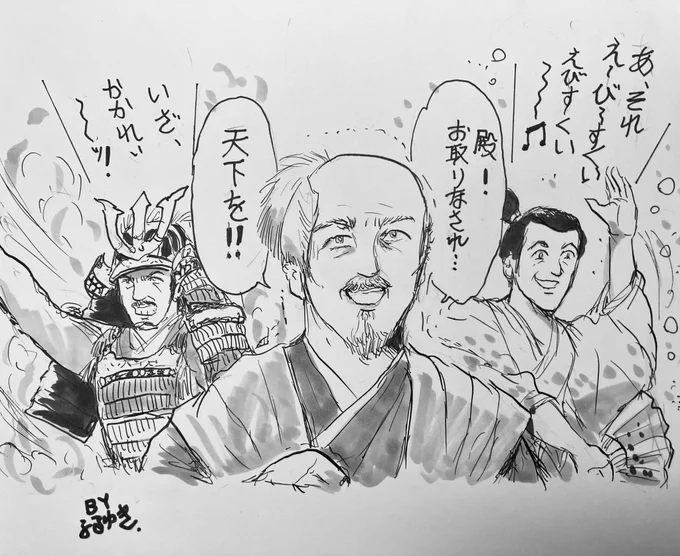 あ、それ
え〜び〜すくい
えびすくい
〜〜〜♫
殿！
お取りなされ…
天下を!!
いざ、
かかれぃ
〜〜ッ!
BY